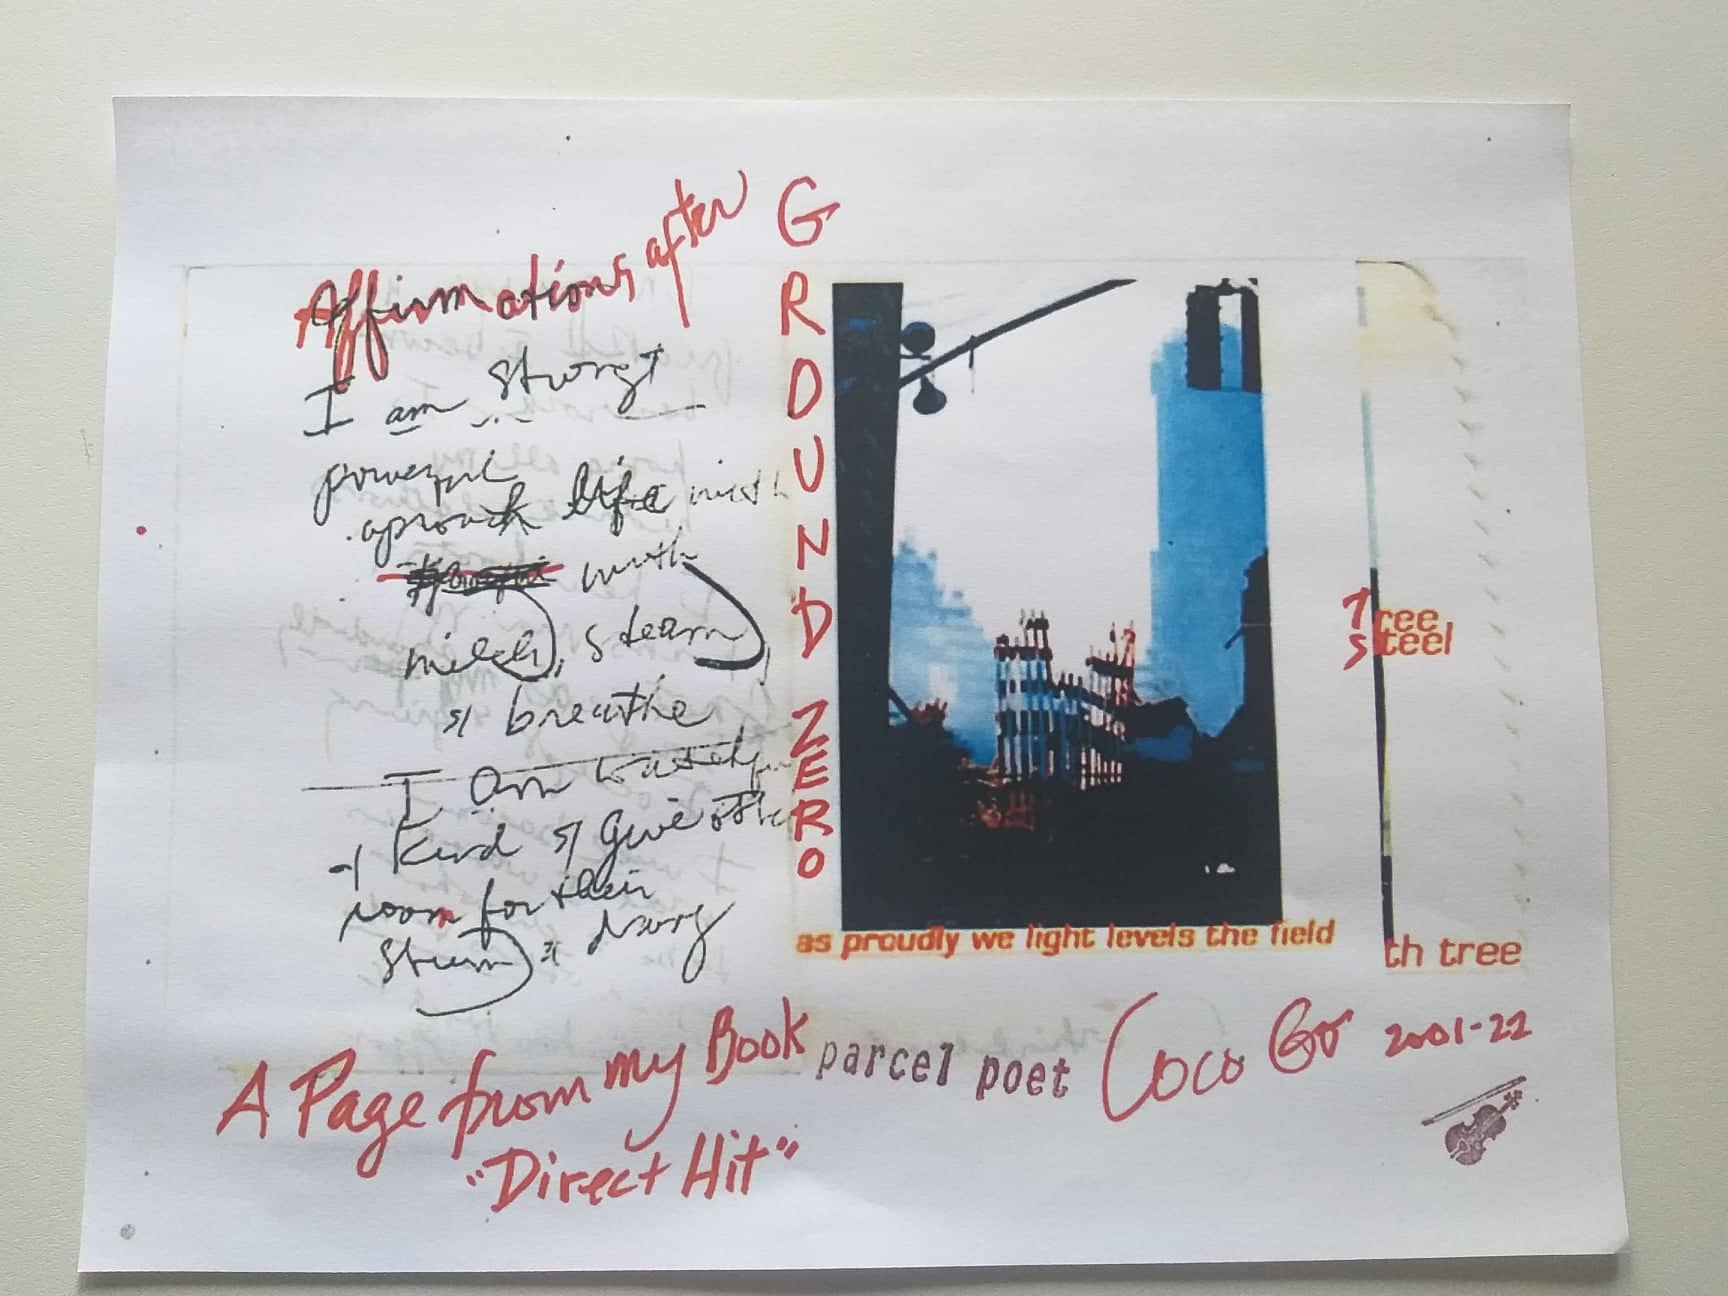 Affirmations after
GROUND ZERO
I am strong &
powerful
aproach life with
with
, steam,
& breathe
I Am
& Kind & Give othe
room for their
& 
as proudly we light levels the field
Tree
steel
th tree
A Page from my Book
"Direct Hit"
parcel poet
Coco Go 2001-22